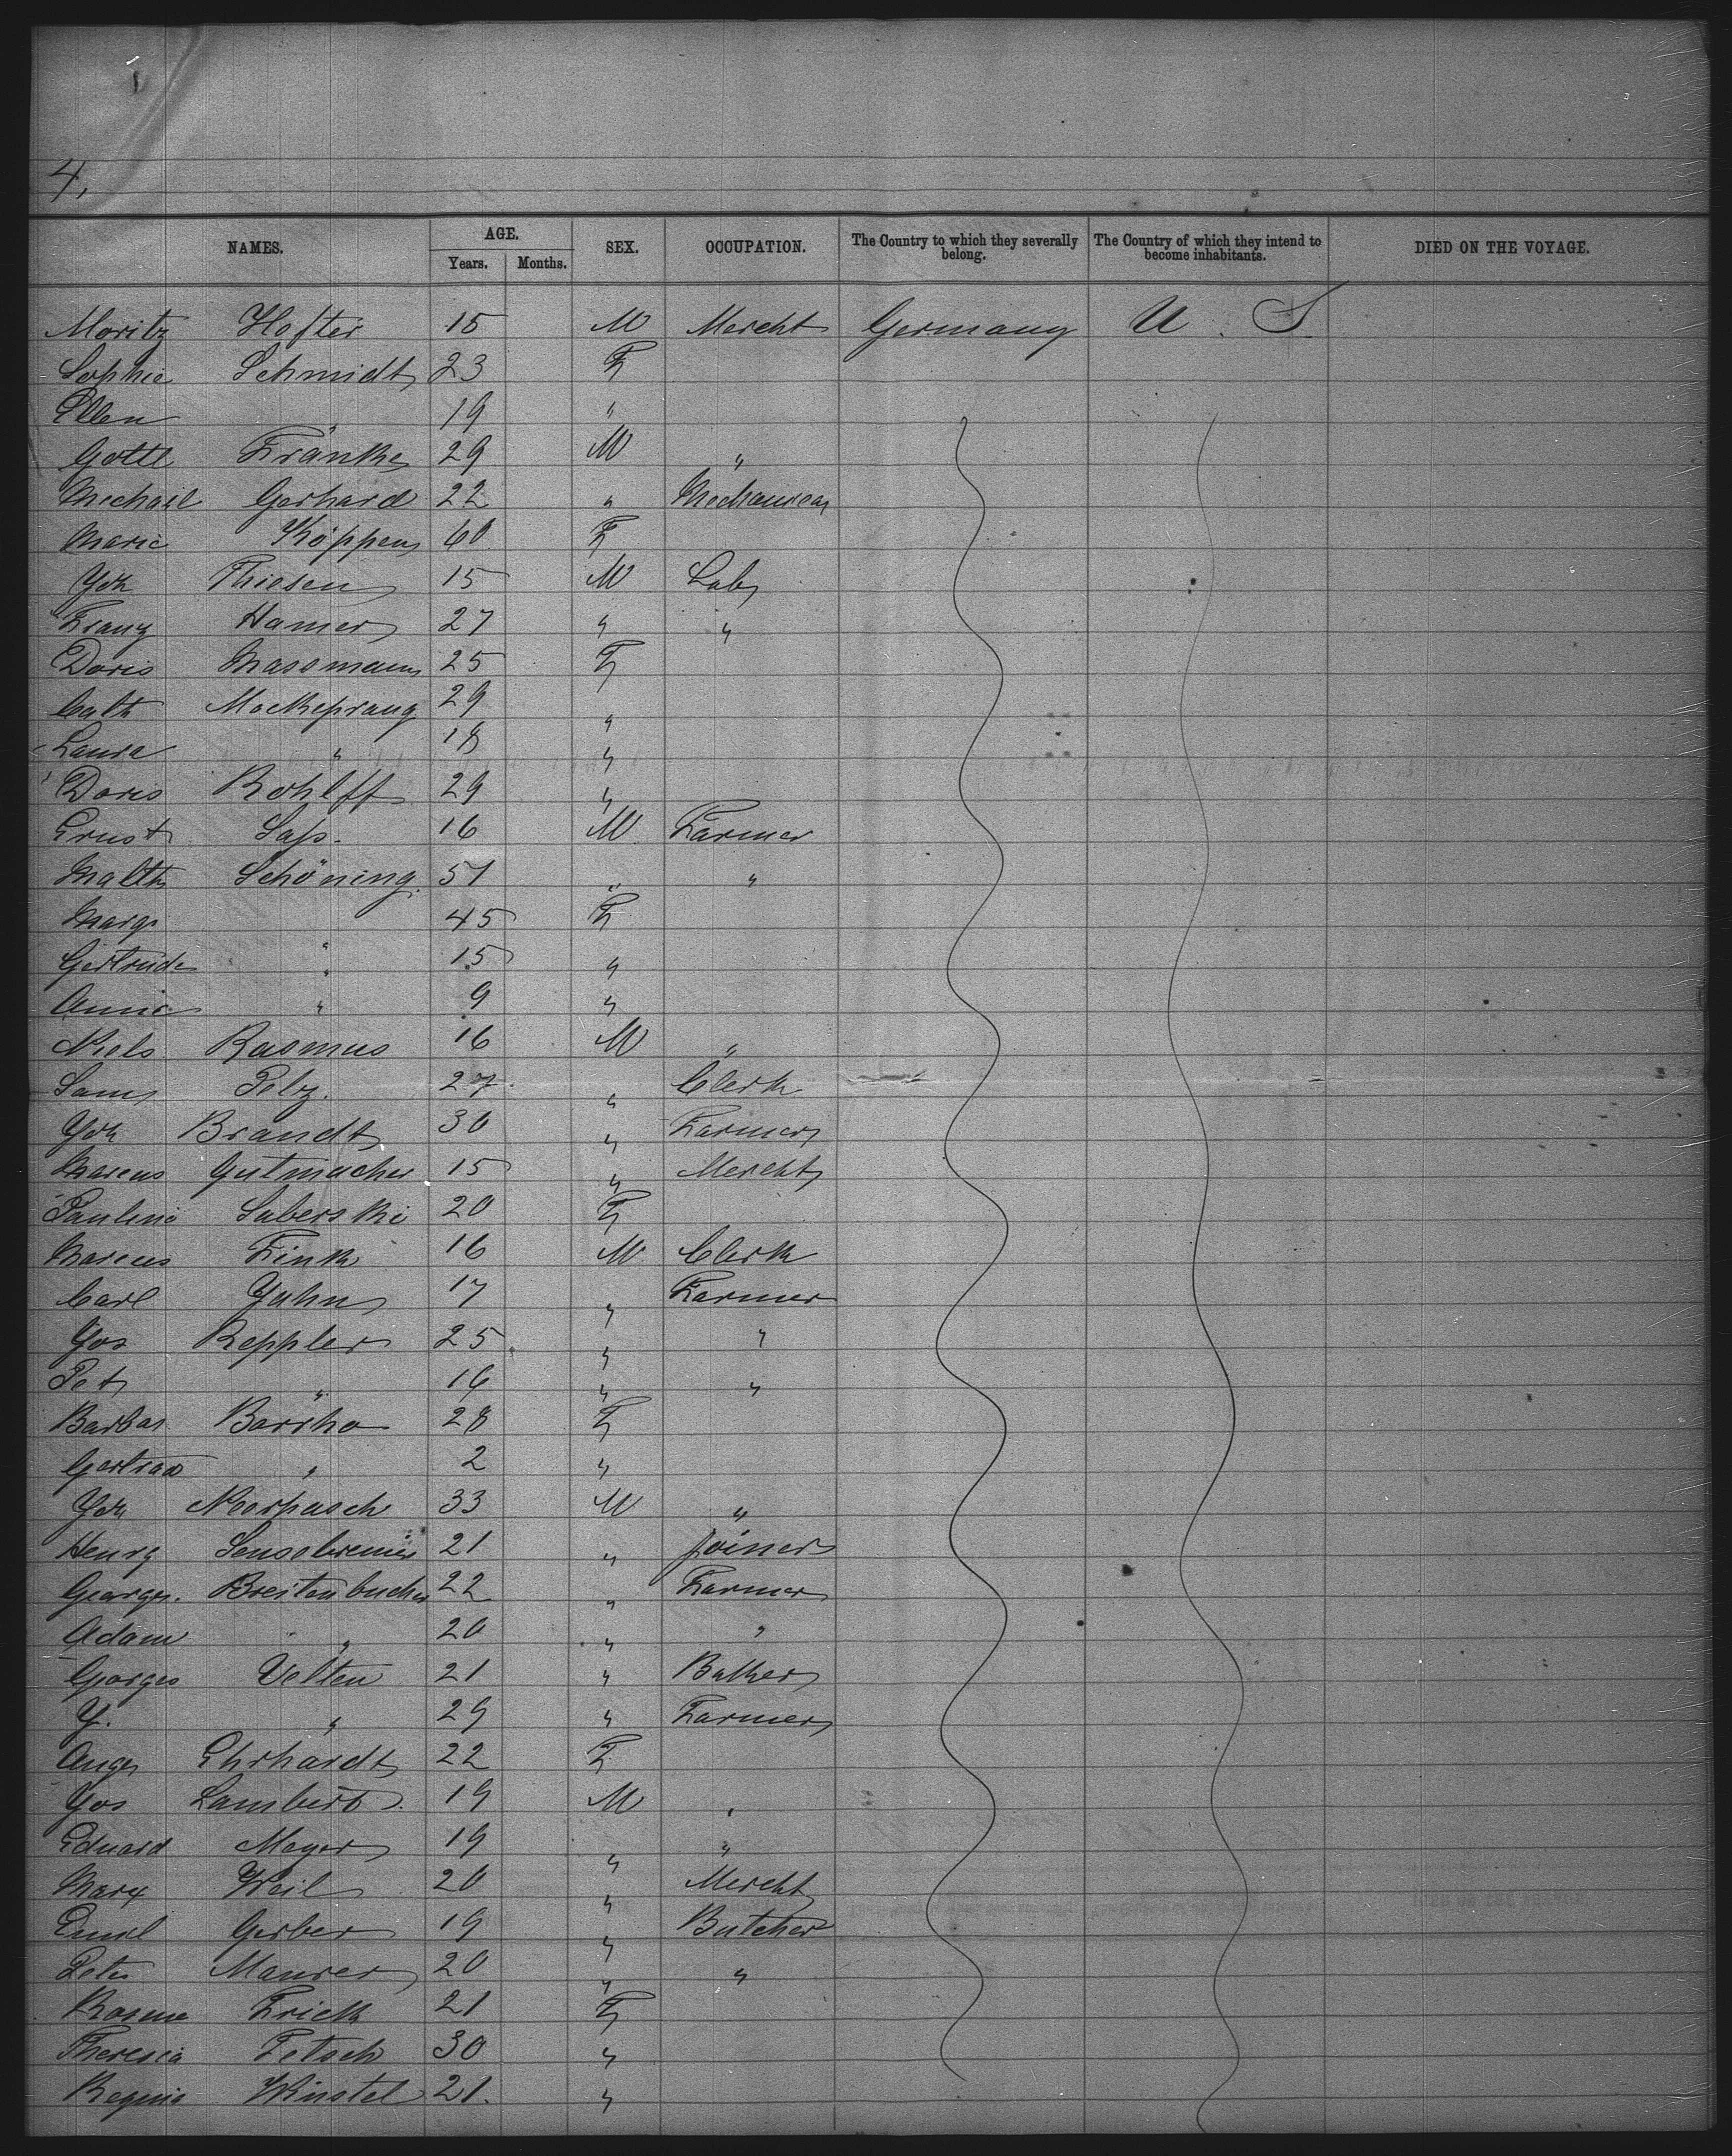 4,
NAMES. AGE. SEX. OCCUPATION. The Country to which they severally belong. The Country of which they intend to become inhabitants. DIED ON THE VOYAGE.
Years. Months.
Moritz Hofter 15 M Mercht Germany U. S
Sophie Schmidt 23 F
Ellen " 19 "
Gottl Franke 29 M "
Michael Gerhard 22 " Mechanican
Marie Köppen 60 F
Joh Thiesen 15 M Lab
Franz Hamer 27 " "
Doris Massmann 25 F
Cath Mackeprang 29 "
Laura " 18 "
Doris Rohlff 29 "
Ernst Sass. 16 M Farmer
Matth Schöning 51 " "
Marg " 45 F
Gertrude " 15 "
Annie " 9 "
Niels Rasmus 16 M "
Sam Pelz. 27 " Clerk
Joh Brandt 30 " Farmer
Marcus Gutmacher 15 " Mercht
Pauline Saberski 20 F
Marcus Fink 16 M Clerk
Carl Jahn 17 " Farmer
Jos Reppler 25 " "
Pet " 16 " "
Barbar 28 F
Gertrad " 2 "
Joh 33 M "
Henry 21 " Joiner
Georges. Breitenbucher 22 " Farmer
Adam " 20 " "
Georges Velten 21 " Baker
J. " 29 " Farmer
Ehrhardt 22 F
Jos Lambert 19 M "
Eduard Meyer 19 " "
Marx Weil 20 " Mercht
Emil Gerber 19 " Butcher
Peter Maurer 20 " "
Rosine Frick 21 F
Theresia Petsch 30 "
Regina 21. "